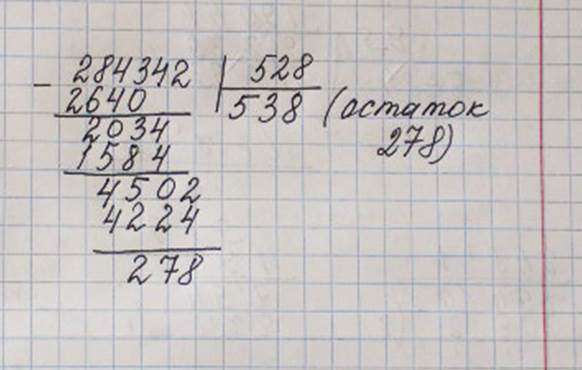 - 284342 | 528
2640 538 (остаток
2034 278)
1584
4502
4224
278